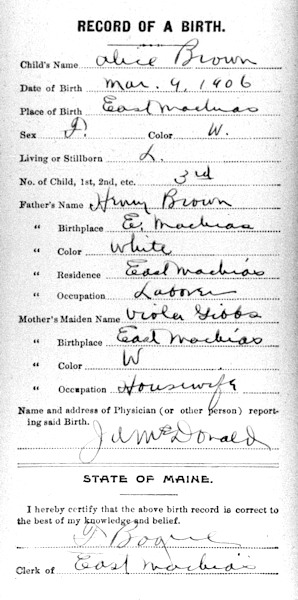 RECORD OF A BIRTH.
Child's Name Alice Brown
Date of Birth Mar. 9, 1906
Place of Birth East Machias
Sex F. Color W.
Living or Stillborn L.
No. of Child, 1st, 2nd, etc. 3rd
Father's Name Henry Brown
" Birthplace E. Machias
" Color White
" Residence East Machias
" Occupation Laborer
Mother's Maiden Name Viola Gibbs
" Birthplace East Machias
" Color W
" Occupation Housewife
Name and address of Physician (or other person) report-
ing said Birth.
J A McDonald
STATE OF MAINE.
I hereby certify that the above birth record is correct to
the best of my knowledge and belief.
Clerk of East Machias